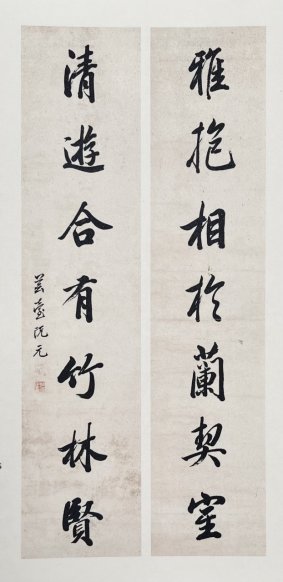 雅抱相於蘭契室
清遊合有竹林賢
芸臺阮元